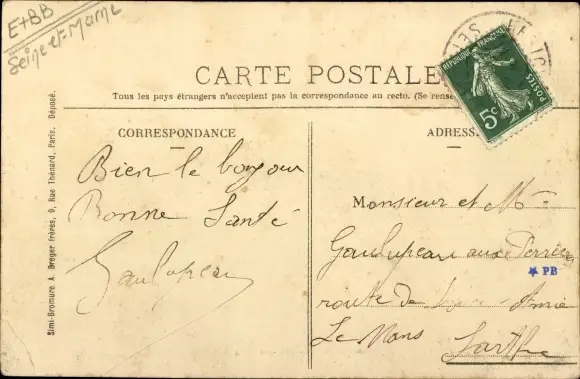 E+BB
Seine-et-Marne
CARTE POSTALE
Tous les pays étrangers n'acceptent pas la correspondance au recto. (Se rense
CORRESPONDANCE
Bien le bonjour
Bonne Santé
Gaulupeau
ADRESS
Monsieur et Mme
Gaulupeau aux Perrées
route de
Le Mans
Sarthe
PB
RÉPUBLIQUE FRANÇAISE
POSTES
5c
Simi-Bromure A. Breger frères, 9, Rue Thénard, Paris. Déposé.